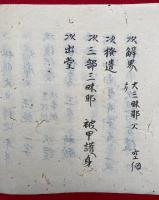 次解界 大三昧耶 火 空網
次撥遣
次三部三昧耶 被甲護身
次出堂